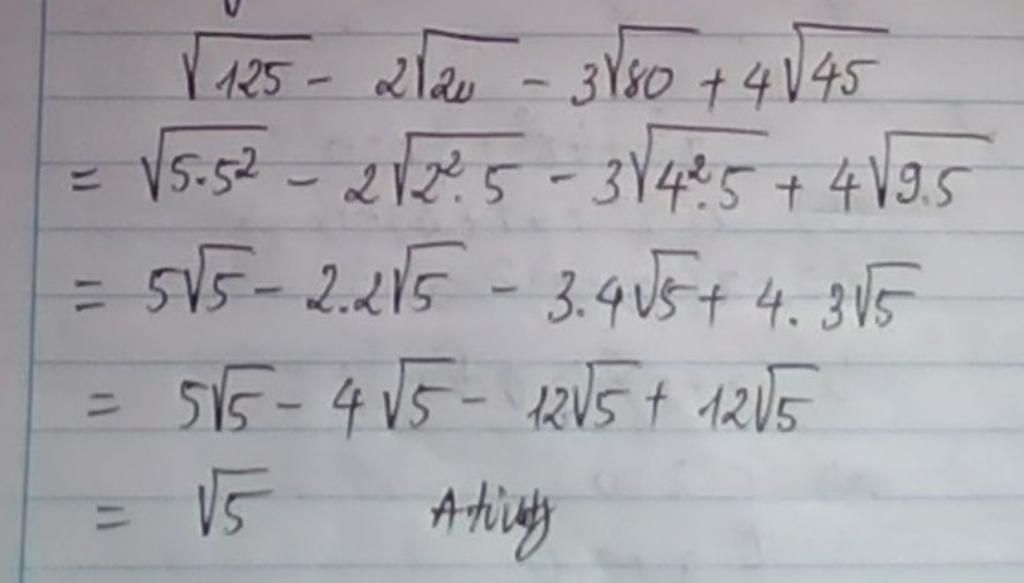 √125 - 2√20 - 3√80 + 4√45
= √5.5² - 2√2².5 - 3√4².5 + 4√9.5
= 5√5 - 2.2√5 - 3.4√5 + 4.3√5
= 5√5 - 4√5 - 12√5 + 12√5
= √5